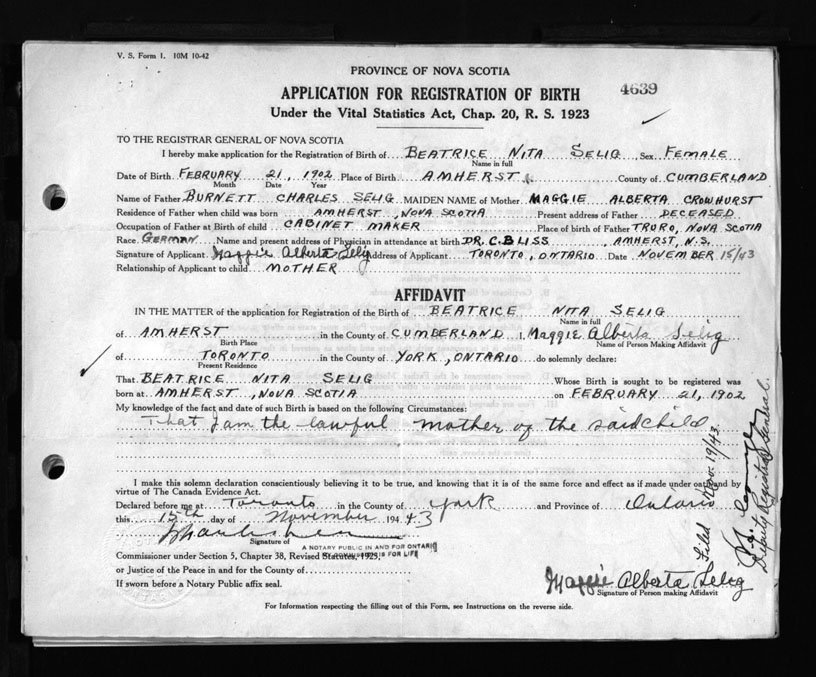 V. S. Form 1. 10M 10-42
PROVINCE OF NOVA SCOTIA
APPLICATION FOR REGISTRATION OF BIRTH 4639
Under the Vital Statistics Act, Chap. 20, R. S. 1923
TO THE REGISTRAR GENERAL OF NOVA SCOTIA
I hereby make application for the Registration of Birth of BEATRICE NITA SELIG Sex FEMALE
Name in full
Date of Birth FEBRUARY 21, 1902 Place of Birth AMHERST County of CUMBERLAND
Month Date Year
Name of Father BURNETT CHARLES SELIG MAIDEN NAME of Mother MAGGIE ALBERTA CROWHURST
Residence of Father when child was born AMHERST, NOVA SCOTIA Present address of Father DECEASED
Occupation of Father at Birth of child CABINET MAKER Place of birth of Father TRURO, NOVA SCOTIA
Race GERMAN Name and present address of Physician in attendance at birth DR. C. B LISS AMHERST, N.S.
Signature of Applicant Maggie Alberta Selig Address of Applicant TORONTO, ONTARIO Date NOVEMBER 15/43
Relationship of Applicant to child MOTHER
AFFIDAVIT
IN THE MATTER of the application for Registration of the Birth of BEATRICE NITA SELIG
Name in full
of AMHERST in the County of CUMBERLAND I, Maggie Alberta Selig
Birth Place Name of Person Making Affidavit
of TORONTO in the County of YORK, ONTARIO do solemnly declare:
Present Residence
That BEATRICE NITA SELIG Whose Birth is sought to be registered was
born at AMHERST, NOVA SCOTIA on FEBRUARY 21, 1902
My knowledge of the fact and date of such Birth is based on the following Circumstances:
That I am the lawful mother of the said child
I make this solemn declaration conscientiously believing it to be true, and knowing that it is of the same force and effect as if made under oath and by
virtue of The Canada Evidence Act.
Declared before me at Toronto in the County of York and Province of Ontario
this 15th day of November 1943
Signature of
A NOTARY PUBLIC IN AND FOR ONTARIO
MY COMMISSION IS FOR LIFE
Commissioner under Section 5, Chapter 38, Revised Statutes, 1923.
or Justice of the Peace in and for the County of
If sworn before a Notary Public affix seal.
Maggie Alberta Selig
Signature of Person making Affidavit
For Information respecting the filling out of this Form, see Instructions on the reverse side.
Filed Nov. 19/43
Deputy Registrar General.